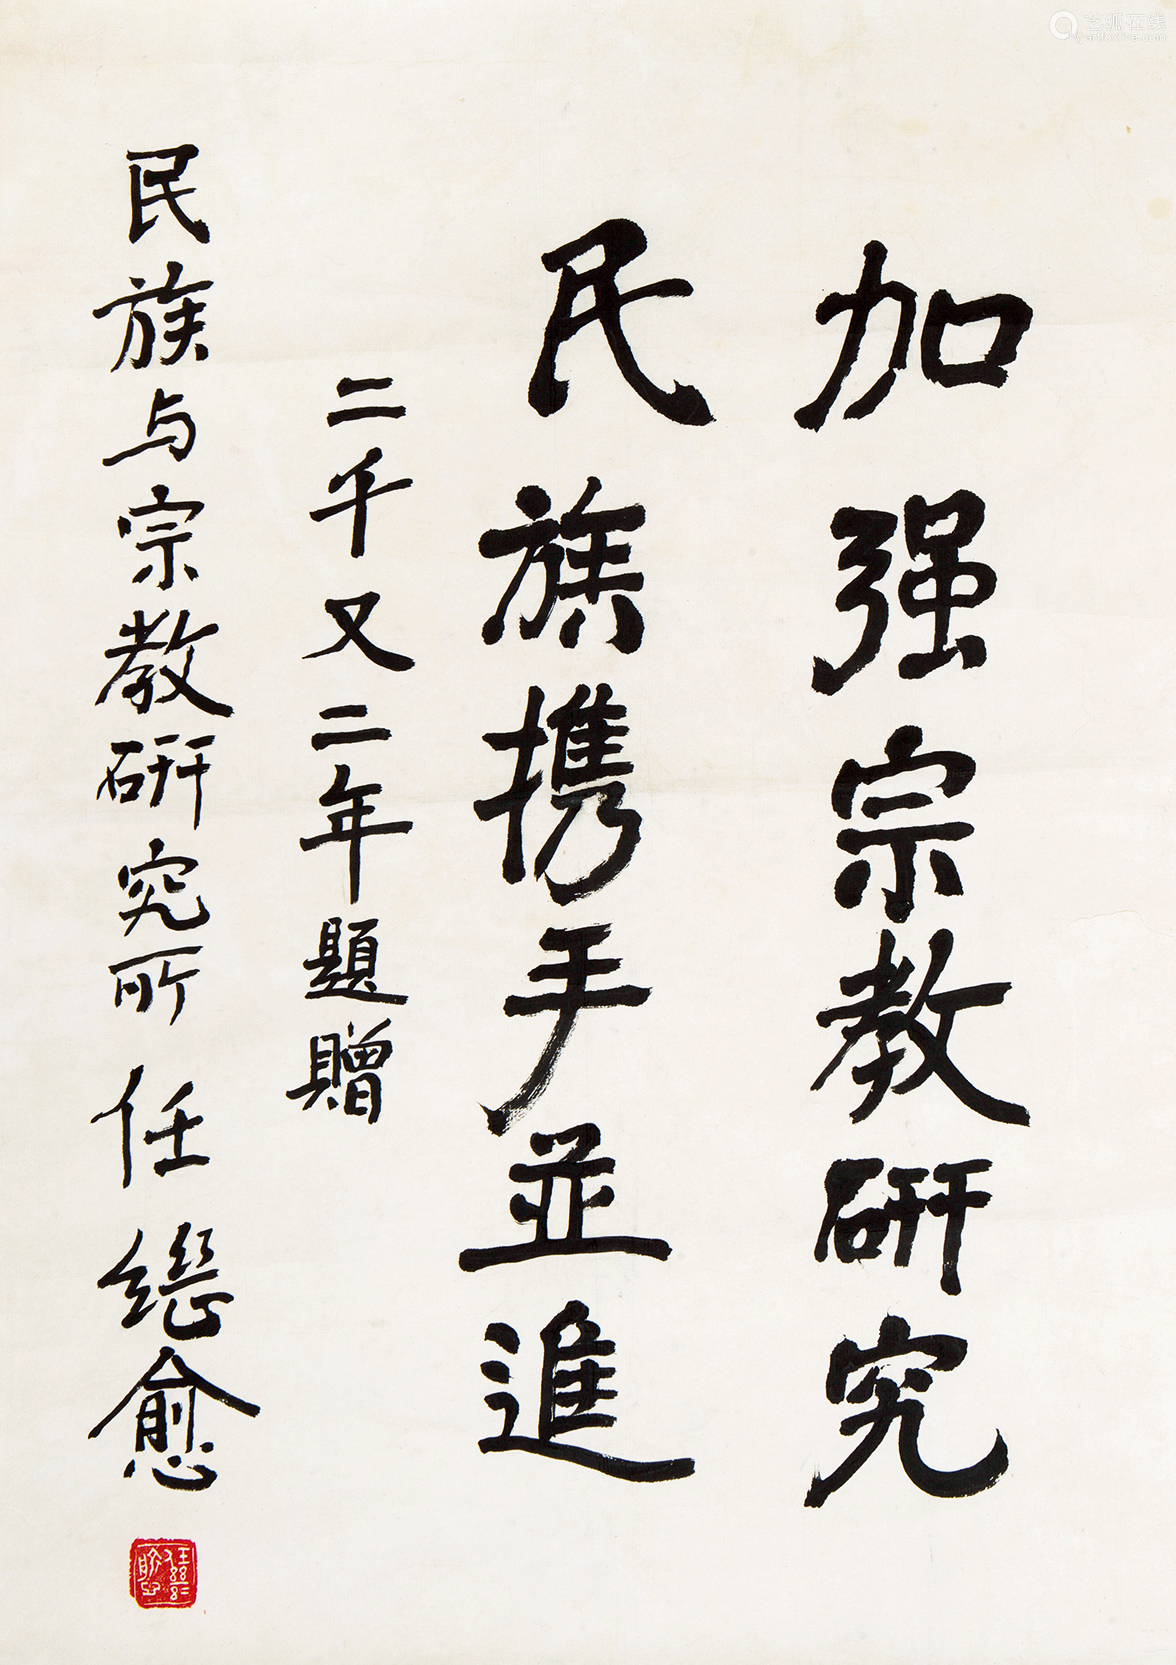 加强宗教研究
民族携手並進
二千又二年題贈
民族与宗教研究所 任繼愈
艺狐在线